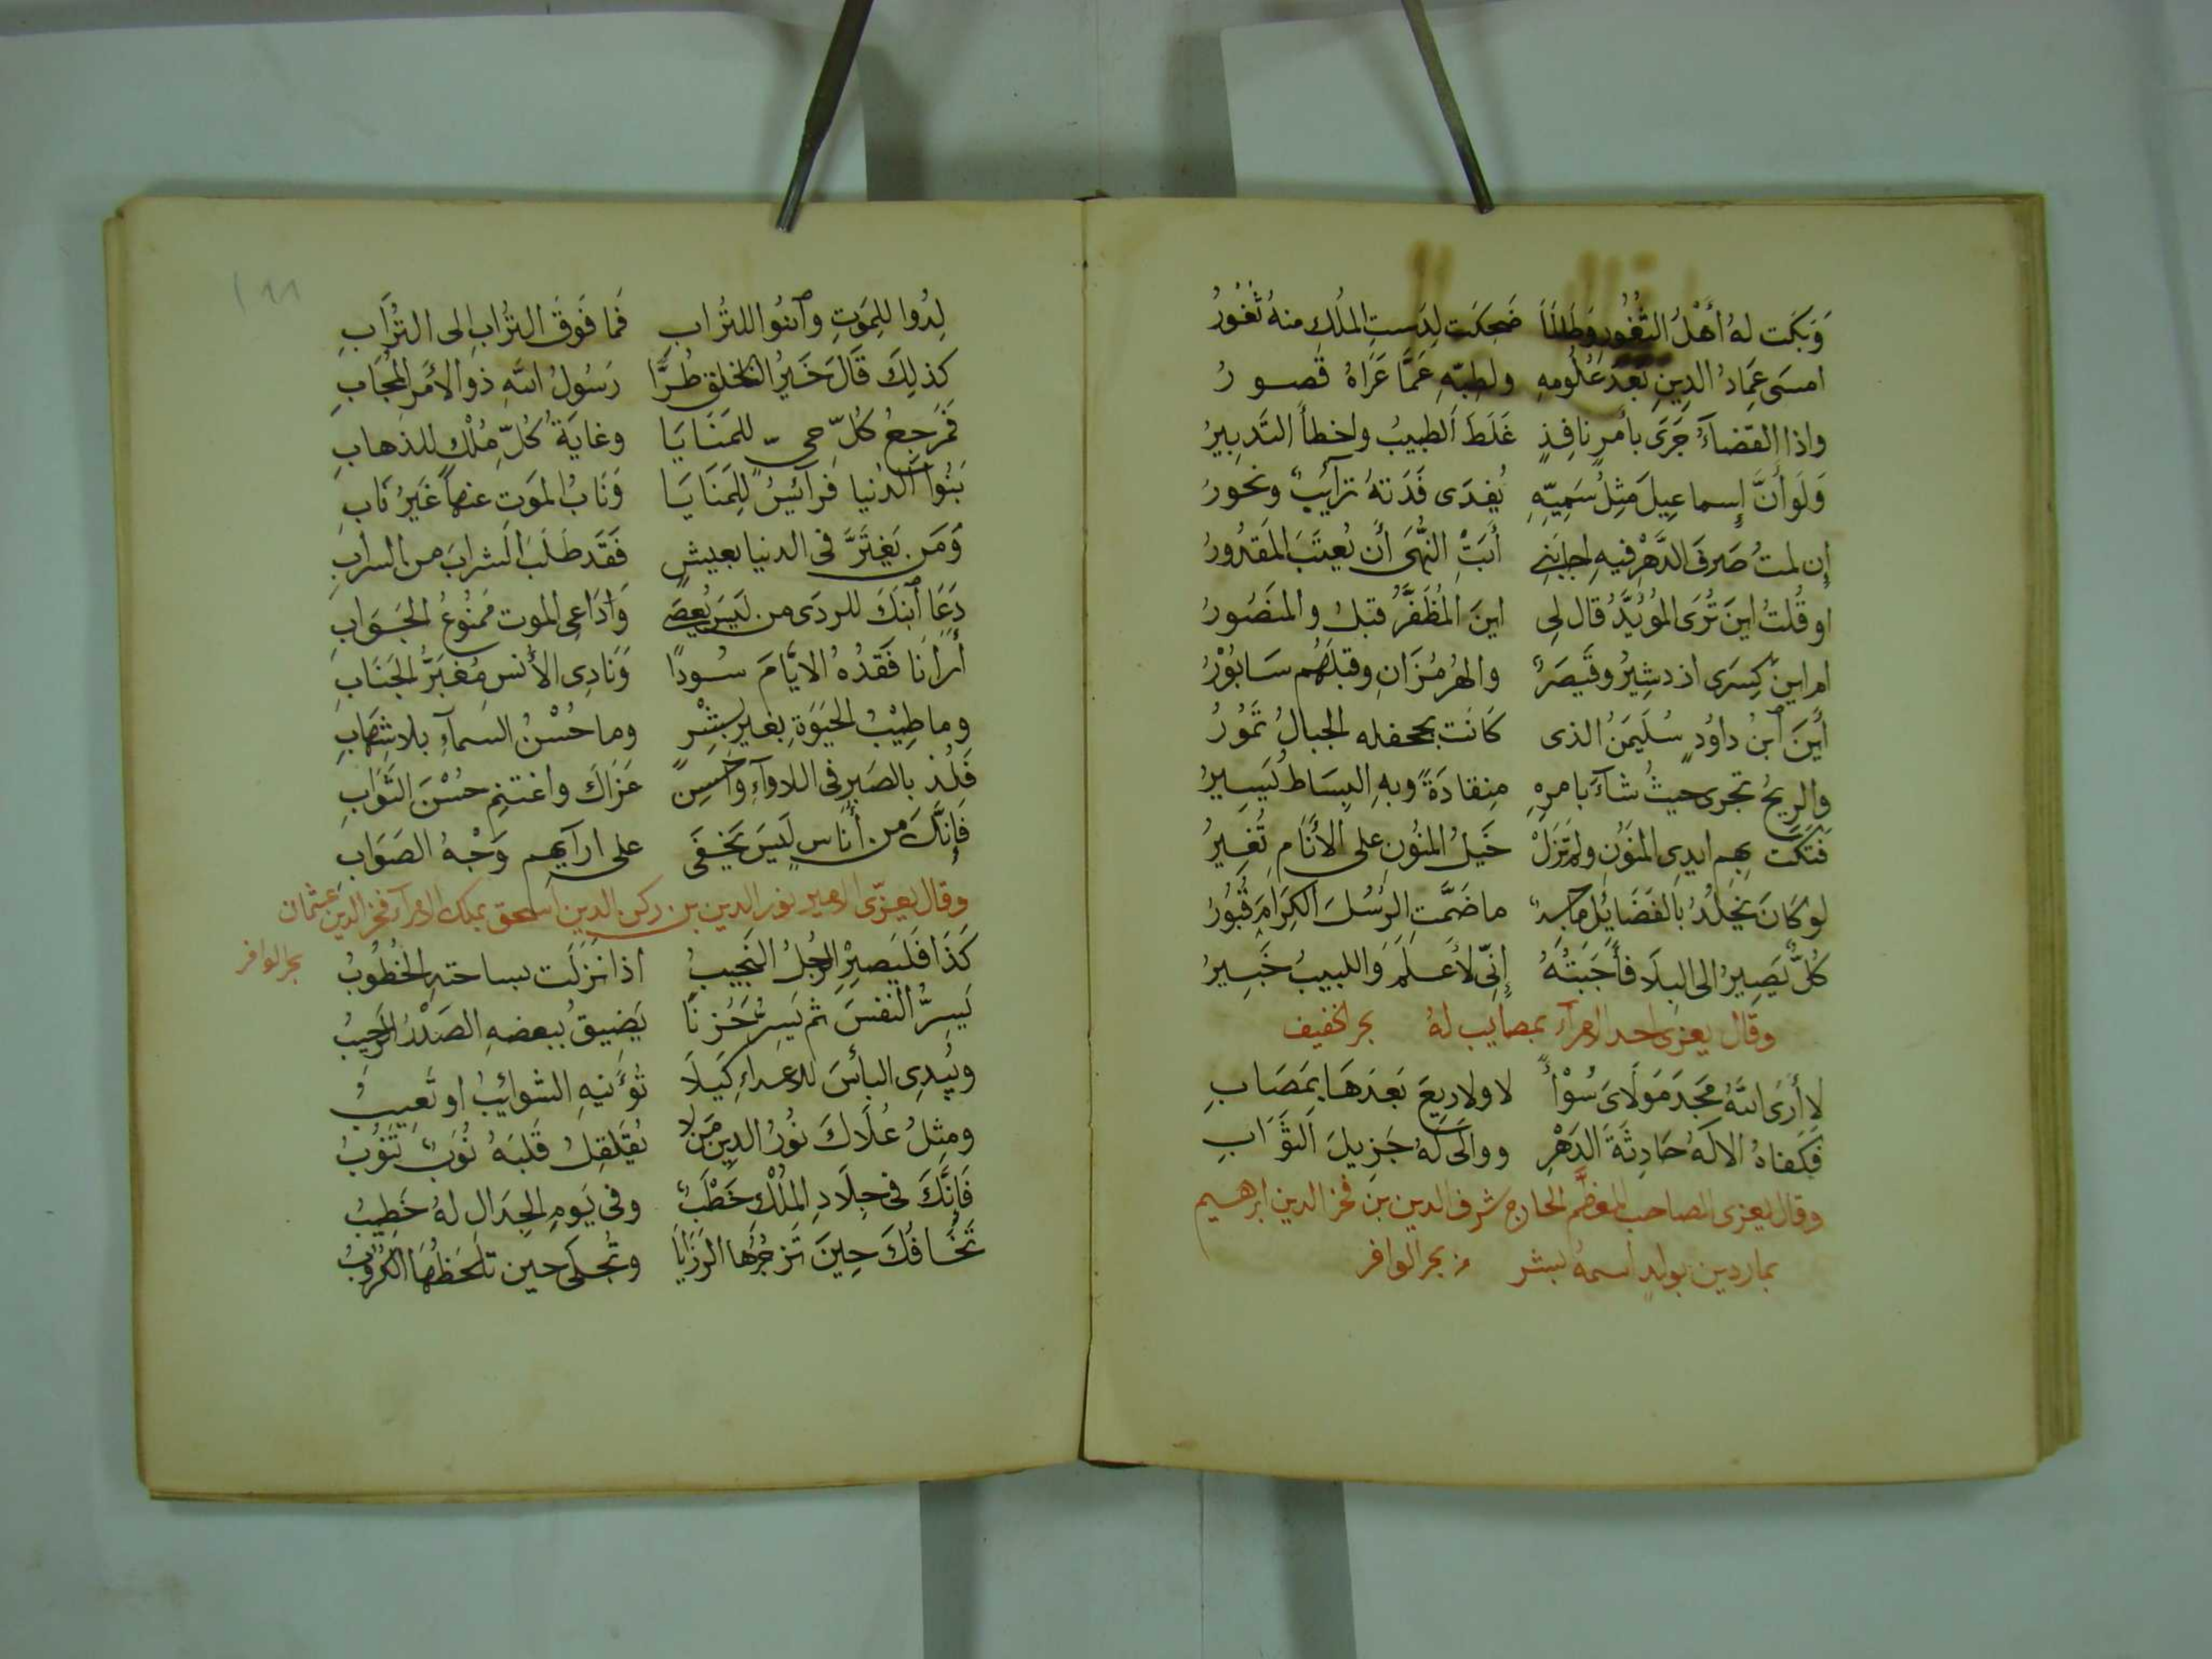 وَبَكَت لهُ أَهْلُ الثُّغُورِ وَطَالَمَا ضَحِكَت لِدَستِ المُلكِ منهُ ثُغُورُ
امسَى عِمَادُ الدِينِ بَعدَ عُلُومهِ ولطِبّهِ عَمَّا عَرَاهُ قصورُ
واذا القضآءُ جَرَى بأمرٍ نافِذٍ غَلَطَ الطبيبُ واخطأَ التَدبِيرُ
وَلَو أَنَّ إسماعِيلَ مَثِلُ سَمِيّهِ يُفدَى فَدَتهُ ترآئبٌ ونحورُ
إن لمتُ صَرفَ الدَّهْرِ فيهِ اجابَنِى أَبَتْ النُّهَى أن يُعتَبَ المَقدُورُ
او قُلتُ اينَ تُرَى المُؤَيَّدُ قال لِى اينَ المُظَفَّرُ قبلُ والمنصُورُ
ام اينَ كِسرَى ازدشِيرُ وقَيصَرٌ والهُرمُزَانِ وقبلَهُم سَابُوْرُ
أَينَ ٱبنُ داوُدٍ سُلَيمَنُ الذى كَانَت بجحفله الجبالُ تَمُوُرُ
والريحُ تجرى حيثُ شآءَ بامرهِ مِنقادَةً وبهِ البِسَاطُ يَسِيرُ
فَتَكَت بِهِم ايدِى المَنَوُنِ ولم تَزَلْ خَيلُ المنُونِ على الأَنَامِ تُغِيرُ
لو كَانَ يَخلُدُ بالفَضَائِل مَاجِدٌ ما ضَمَّتِ الرُسُلَ الكِرَامَ قُبُوُرُ
كُلٌّ يَصِيرُ الى البِلَا فَأَجَبتُهُ إنِّى لأَعلَمُ وَاللبيبُ خَبِيرُ
وقال يعزى احد الامرآء بمصايب لهُ بحر الخفيف
لا أَرَى اللهُ مَجدَ مَولَاىَ سُوْأً لا ولا رِيعَ بَعدَهَا بِمَصَابِ
فكَفاهُ الالَهُ حَادِثَةَ الدَهْرِ ووالَى لَهُ جَزِيلَ الثوَابِ
وقال يعزى الصاحب المعظم شرف الدين بن فخر الدين ابرهيم
بماردين بولدٍ اسمهُ بشر من بحر الوافر
لِدُوا للمَوتِ وٱبنُوا للتُرابِ فَما فَوقَ التُرابِ الى التُرَابِ
كذلِكَ قَالَ خَيرُ الخلقِ طُرًّا رَسُولُ اللهِ ذو الأمر المُجَابِ
فَمَرجِعُ كُلِّ حىٍّ للمَنَايَا وغايَةُ كُلِّ مُلْكٍ للذهابِ
بَنُوا الدُنيا فَرآئسُ لِلمَنَايَا وَنَابُ المَوتِ عنها غَيرُ نَابِ
وَمَن يَغتَرَّ فى الدنيا بعيشٍ فَقَد طَلَبَ الشرابَ من السرابِ
دَعَا ٱبنكَ للردَى من لَيسَ يُعصَى وَدَاعى الموت مَمنُوعُ الجَوَابِ
أرَانَا فَقدُهُ الايَّامَ سُودًا وَنَادِى الأنس مُغبَرَّ الجَنَابِ
وما طِيْبُ الحَيَوَةِ بغير بِشْرٍ وما حُسْنُ السمآءِ بلا شِهَابِ
فَلُذ بالصَبرِ فى اللاوآءِ وَاَحسِن عَزَاكَ واغتنِم حُسْنَ الثَوَابِ
فَإنَّكَ من أُنَاسٍ لَيسَ يَخفَى على ارآيهم وَجْهُ الصَوَابِ
وقال يعزّى الامير نور الدين بن ركن الدين اسحق بملك الامرآء فخر الدين عثمان
بحر الوافر
كَذَا فَليَصبِرْ الرجُلُ النَجِيبُ اذا نَزَلَت بساحتهِ الخُطُوبُ
يَسِرُّ النفسَ ثم يَسِرُّ حُزنًا يَضِيقُ ببعضهِ الصَدْرُ الرَحِيبُ
ويُبدِى البأسَ للاعداءِ كَيلَا تُؤَنِّبهِ الشوائِبُ او تَعِيبُ
ومِثِلُ عُلَاكَ نُورَ الدِينِ مَن لا يُقَلقِلُ قَلبَهُ نُوَبٌ تَنُوبُ
فَإنَّكَ فى جِلَادِ المُلْكِ خَطْبٌ وفى يَومِ الجِدَالِ لهُ خَطِيبُ
تَخَافُكَ حِينَ تَزجُرُها الرَزَايَا وتُجلَى حين تلحَظُهَا الكُرُوُبُ